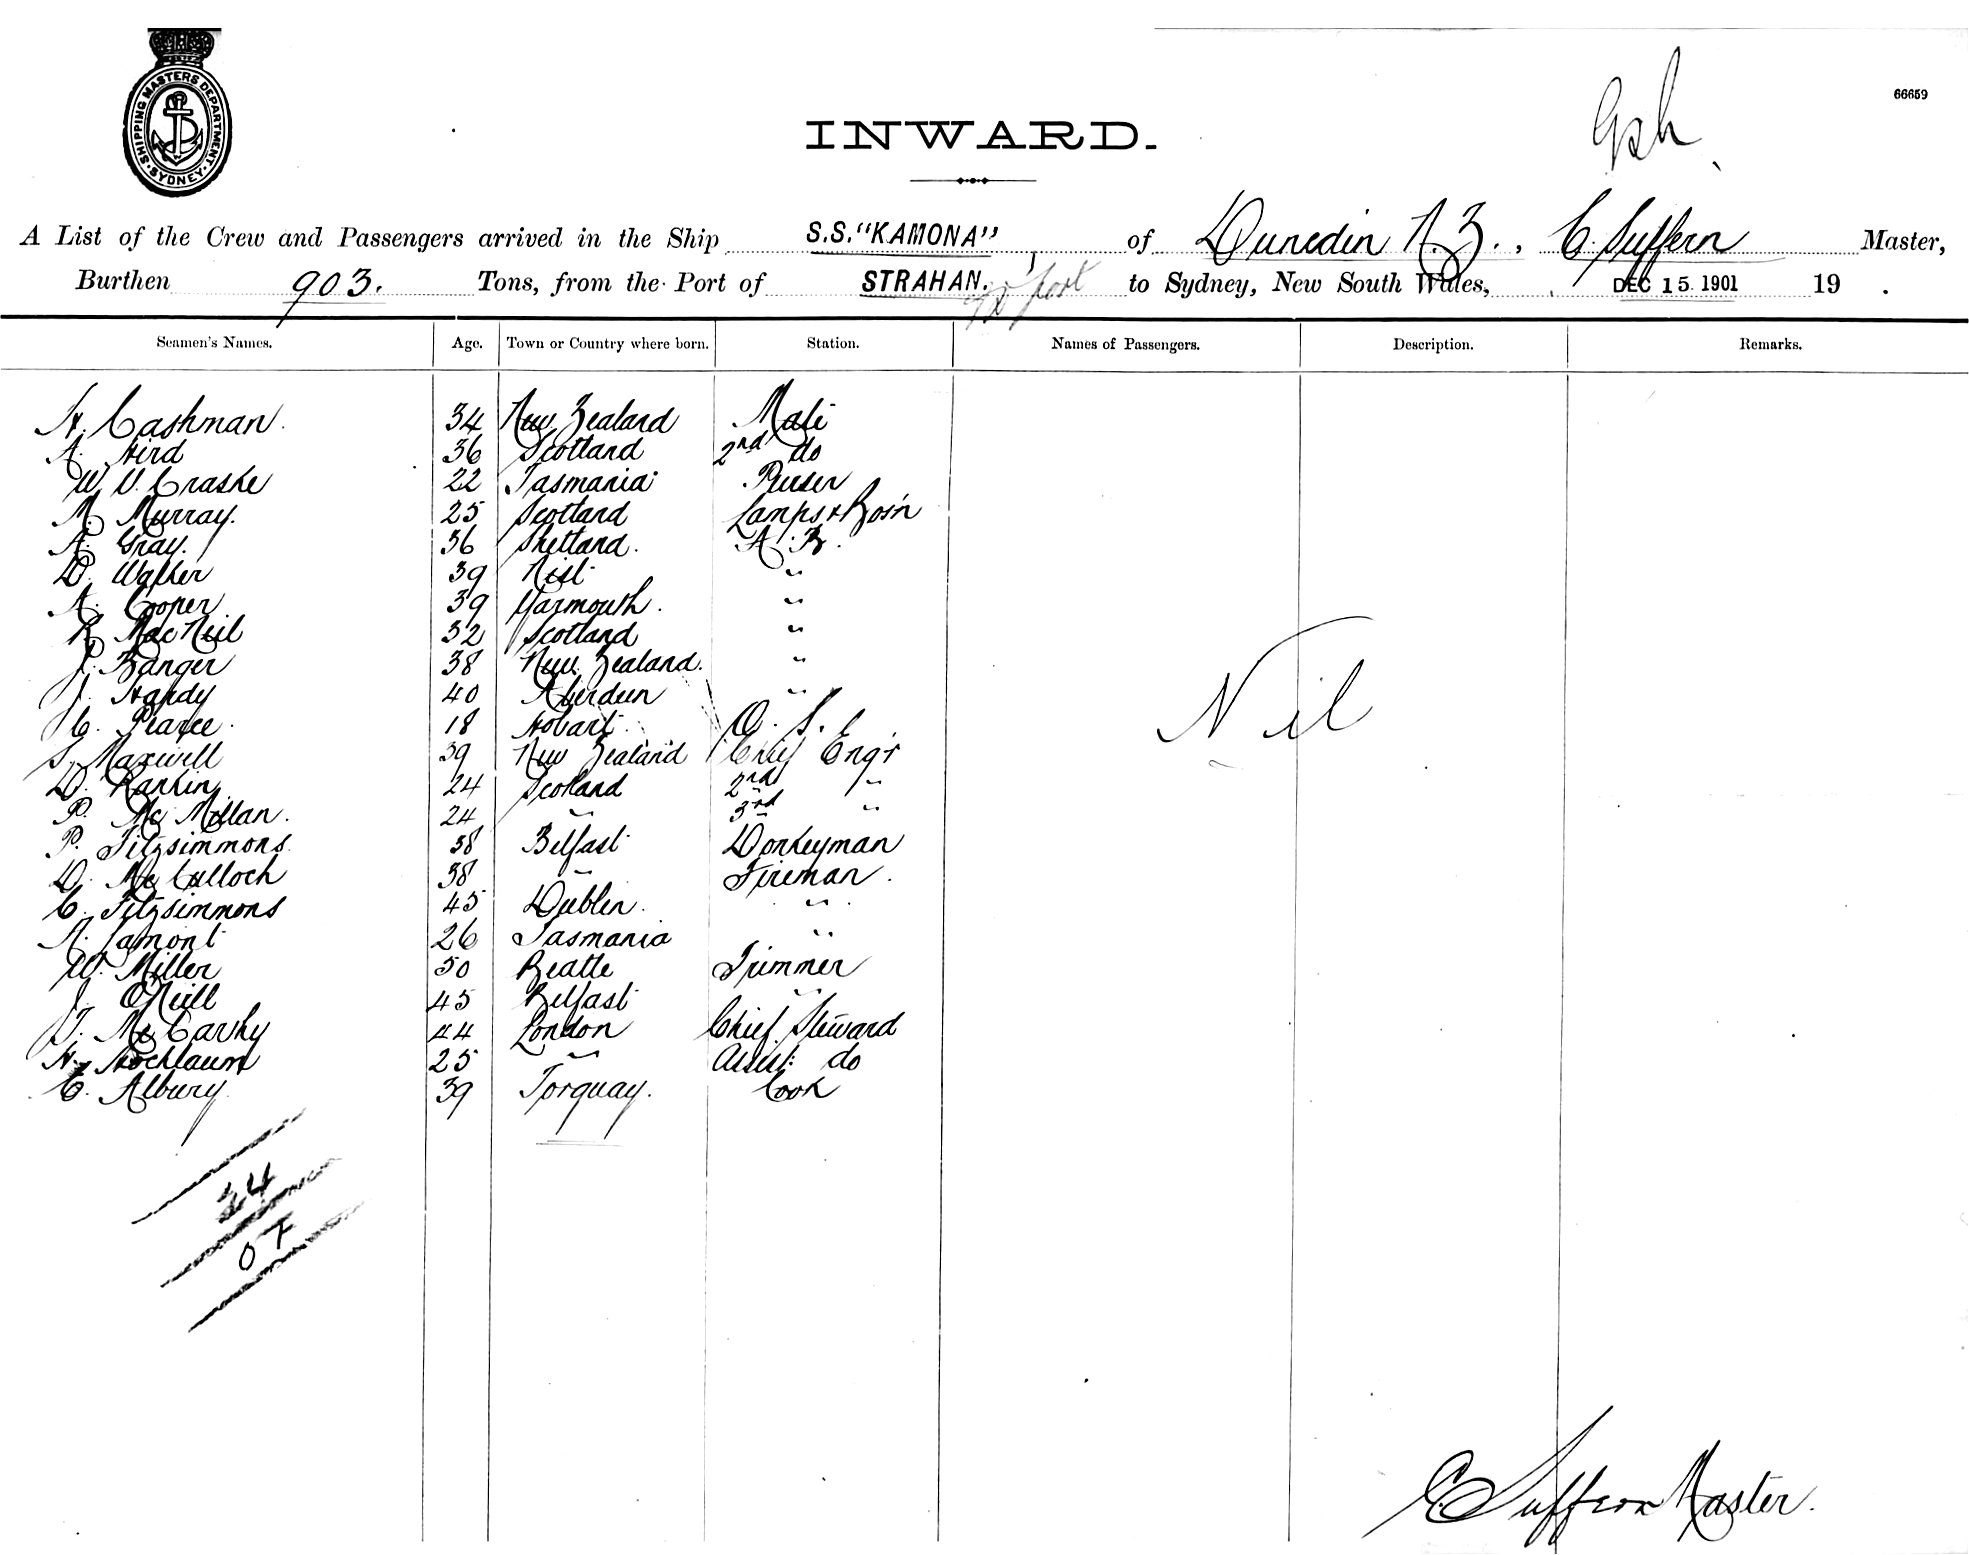 SHIPPING MASTERS DEPARTMENT · SYDNEY ·
66659
INWARD.
A List of the Crew and Passengers arrived in the Ship S.S. "KAMONA", of Dunedin N.Z., C. Suffern Master,
Burthen 903. Tons, from the Port of STRAHAN. to Sydney, New South Wales, DEC 15 1901 19 .
Seamen's Names. Age. Town or Country where born. Station. Names of Passengers. Description. Remarks.
H. Cashman. 34 New Zealand Mate
A. Hird 36 Scotland 2nd do
W. V. Craske 22 Tasmania Purser
M. Murray. 25 Scotland Lamps & Bos'n
A. Gray. 36 Shetland. A. B.
D. Walker 39 "
A. Cooper 39 Yarmouth. "
R. MacNeil 32 Scotland "
J. Banger 38 New Zealand. "
J. Hardy 40 Aberdeen "
C. Pearce. 18 Hobart O. S.
S. Maxwell 39 New Zealand Chief Eng'r
D. Rankin 24 Scotland 2nd "
P. McMillan. 24 " 3rd "
P. Fitzsimmons. 38 Belfast Donkeyman
D. McCulloch 38 " Fireman.
C. Fitzsimmons 45 Dublin. "
A. Lamont 26 Tasmania "
W. Miller 50 Trimmer
J. O'Neill 45 Belfast "
T. McCarthy 44 London Chief Steward
H. 25 " Assist: do
C. Albury 39 Torquay. Cook
Nil
24
C Suffern Master.